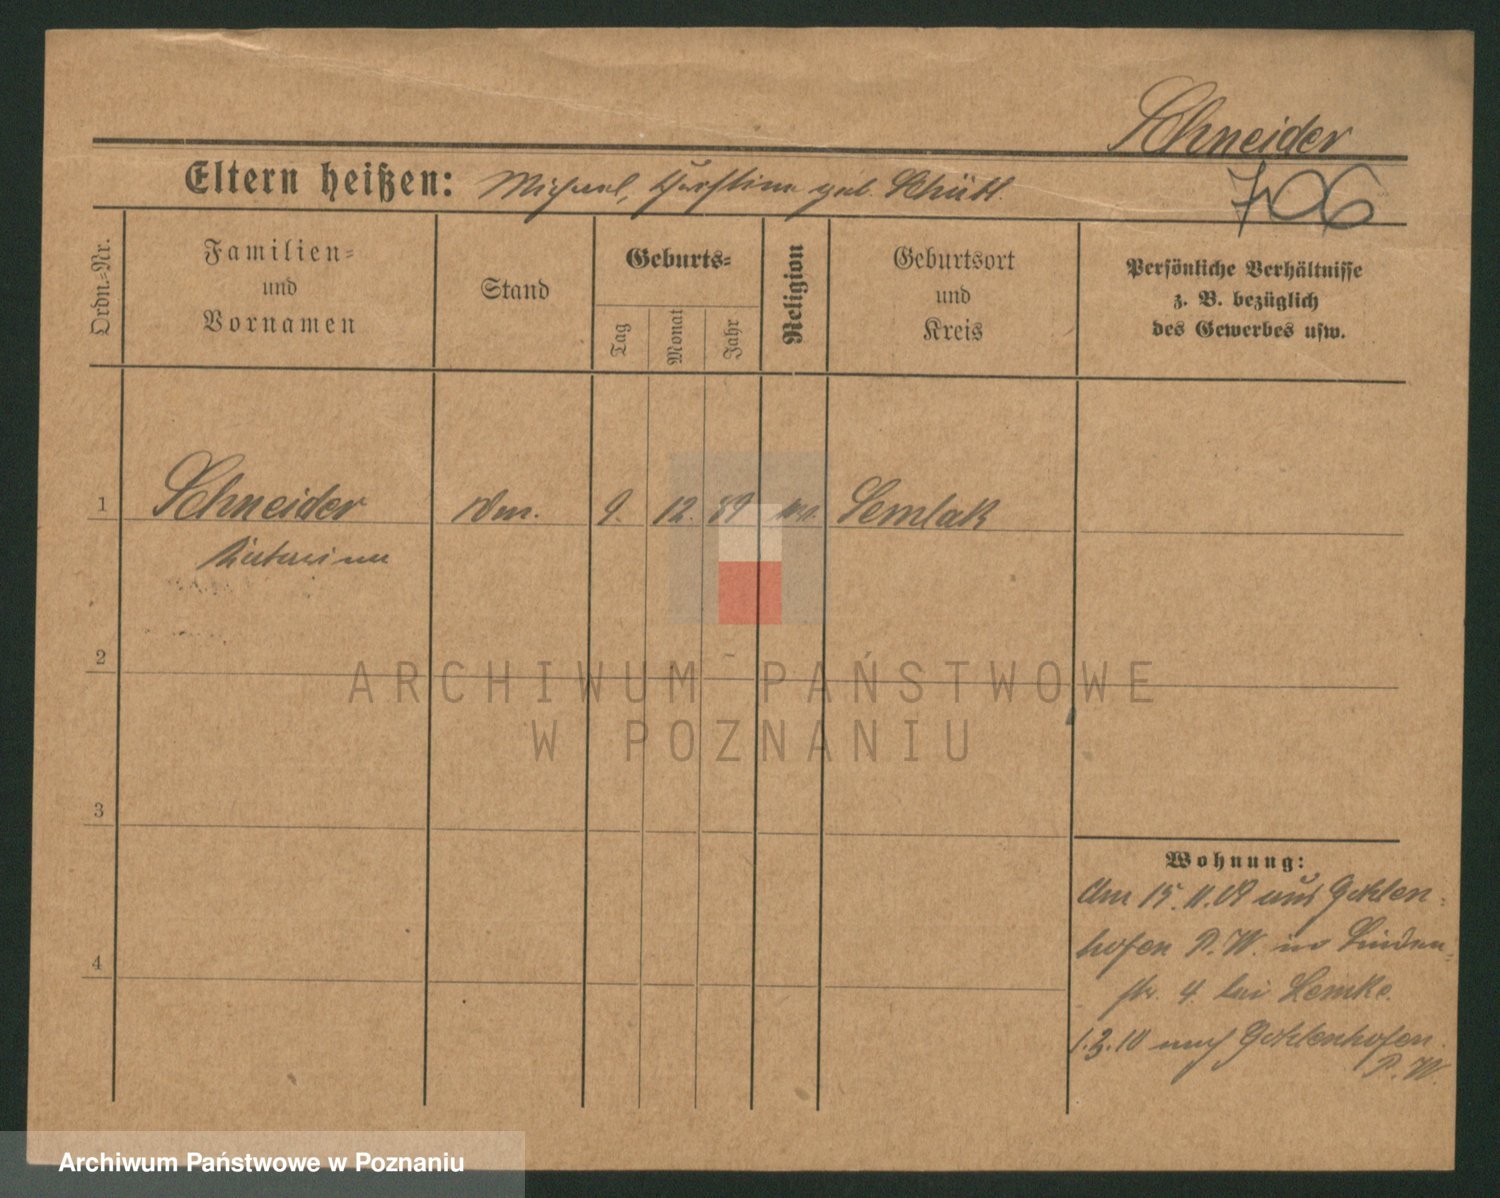 Schneider
Eltern heißen: Michael, Christina geb. Schütt.
706
Ordn.-Nr.
Familien-
und
Vornamen
Stand
Geburts-
Tag
Monat
Jahr
Religion
Geburtsort
und
Kreis
Persönliche Verhältnisse
z. B. bezüglich
des Gewerbes usw.
1 Schneider 9. 12. 89 Semlak
Katharina
2
3
4
Wohnung:
Am 15.11.09 aus Gohlen-
hofen P. W. in Linden-
str. 4. bei Lemke.
1.3.10 nach Gohlenhofen.
P. W.
ARCHIWUM PAŃSTWOWE
W POZNANIU
Archiwum Państwowe w Poznaniu